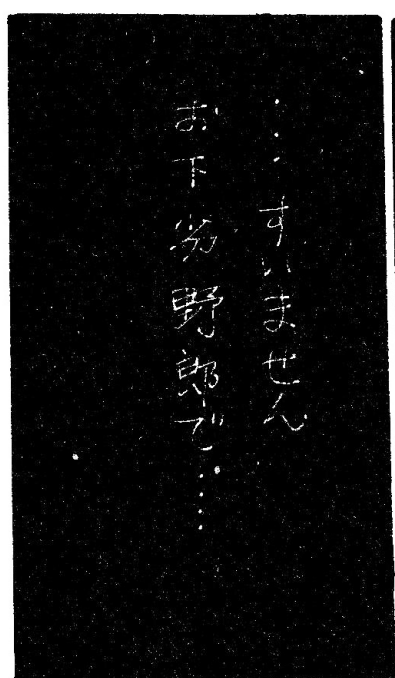 ・・・すいません
お下劣野郎で・・・・・